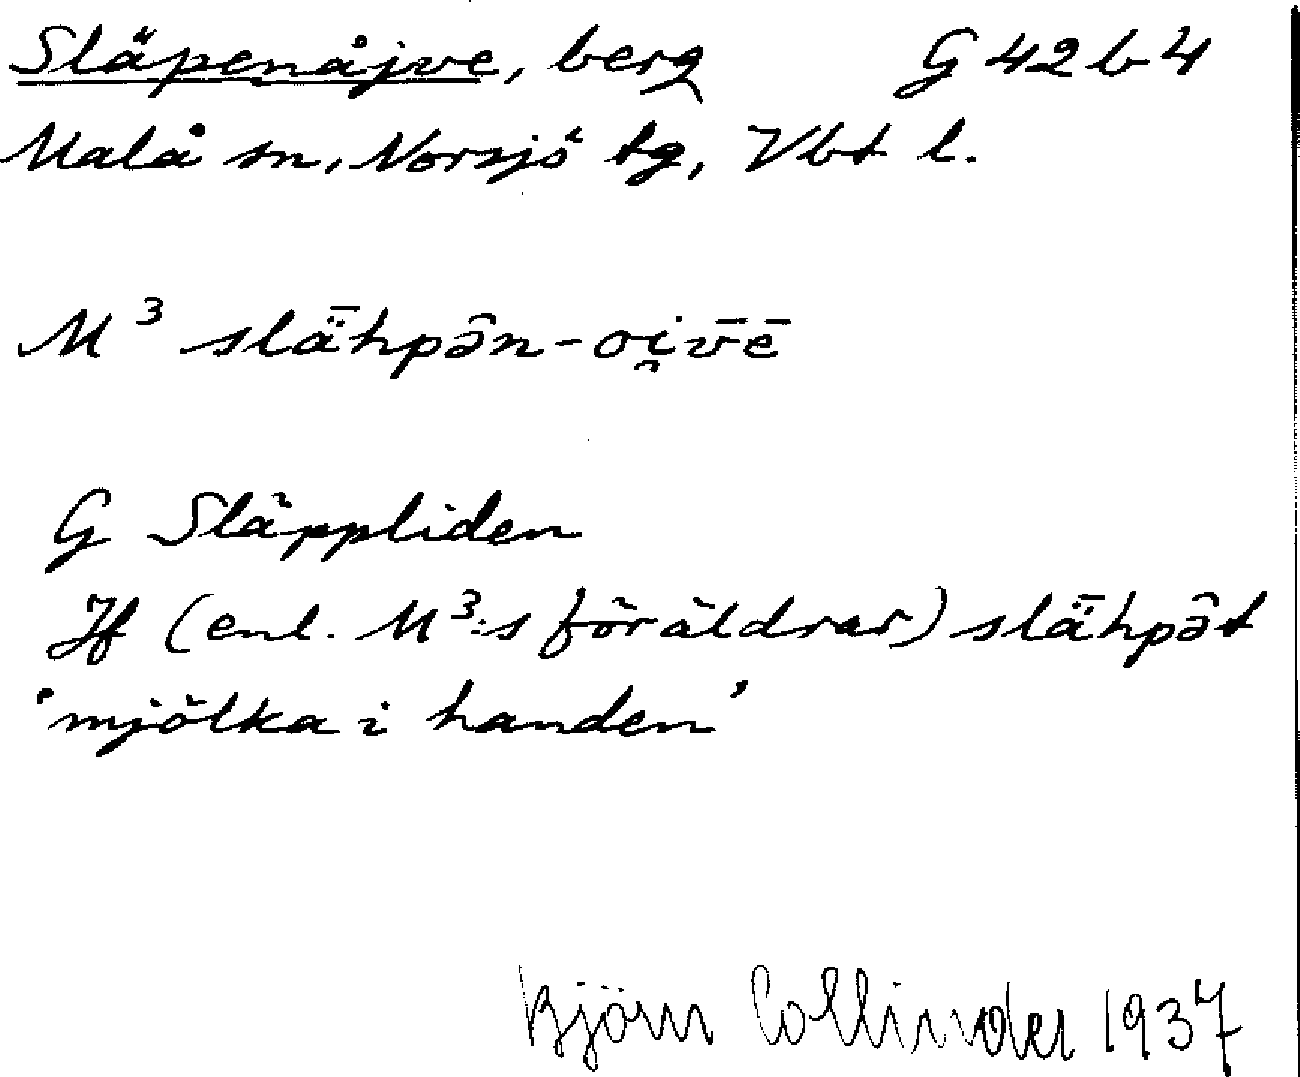 Släpenåjve, berg G 42 b 4
Malå sn, Norsjö tg, Vbt l.
M³ slǟhpə̂n-oi̯v̄ē
G Släppliden
Jf (enl. M³:s föräldrar) slǟhpə̂t
'mjölka i handen'
Björn Collinder 1937